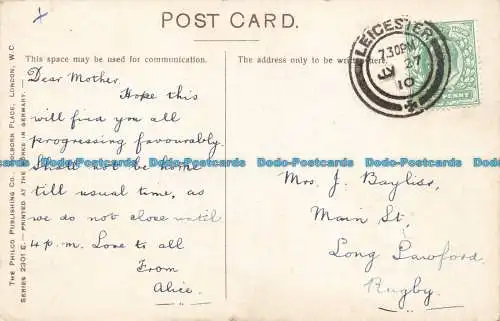 POST CARD.
This space may be used for communication.
The address only to be
LEICESTER
7.30PM
JY 27
10
Dear Mother,
Hope this
will find you all
progressing favourably
Shall not be home
till usual time, as
we do not close until
4 p.m. Love to all
From
Alice.
Mrs. J. Bayliss,
Main St,
Long Lawford,
Rugby.
THE PHILCO PUBLISHING CO., HOLBORN PLACE, LONDON, W.C.
SERIES 2301 E.—PRINTED AT THE WORKS IN GERMANY.
Dodo-Postcards Dodo-Postcards Dodo-Postcards Dodo-Postcards